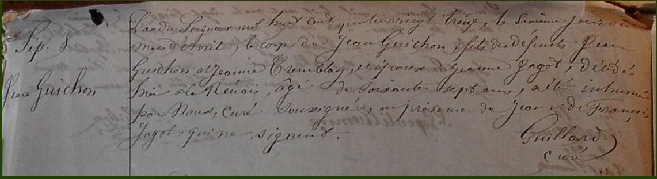 Sep. 8
Jean Guichon
L'an du Seigneur mil huit cent quatre vingt treize, le sixième jour du
mois d'Avril, le corps de Jean Guichon, fils des defunts Jean
Guichon et Jeanne Tremblay, et époux de Jeanne Jagot, décédé
hier à la age de soixante sept ans, a été inhumé
par Nous, Curé soussigné, en présence de Jean et de François
Jagot, qui ne signent.
Guillard
Curé